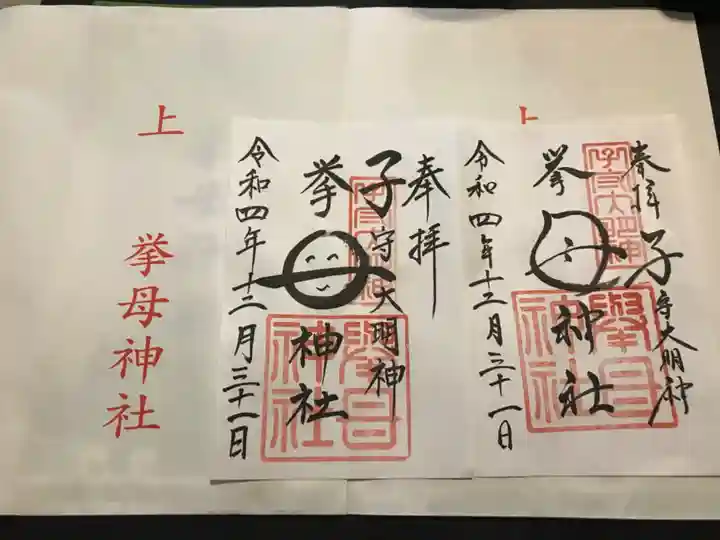 奉拝
子守大明神
挙母神社
令和四年十二月三十一日
擧母
神社
奉拝
子守大明神
挙母神社
令和四年十二月三十一日
擧母
神社
上
上
挙母神社